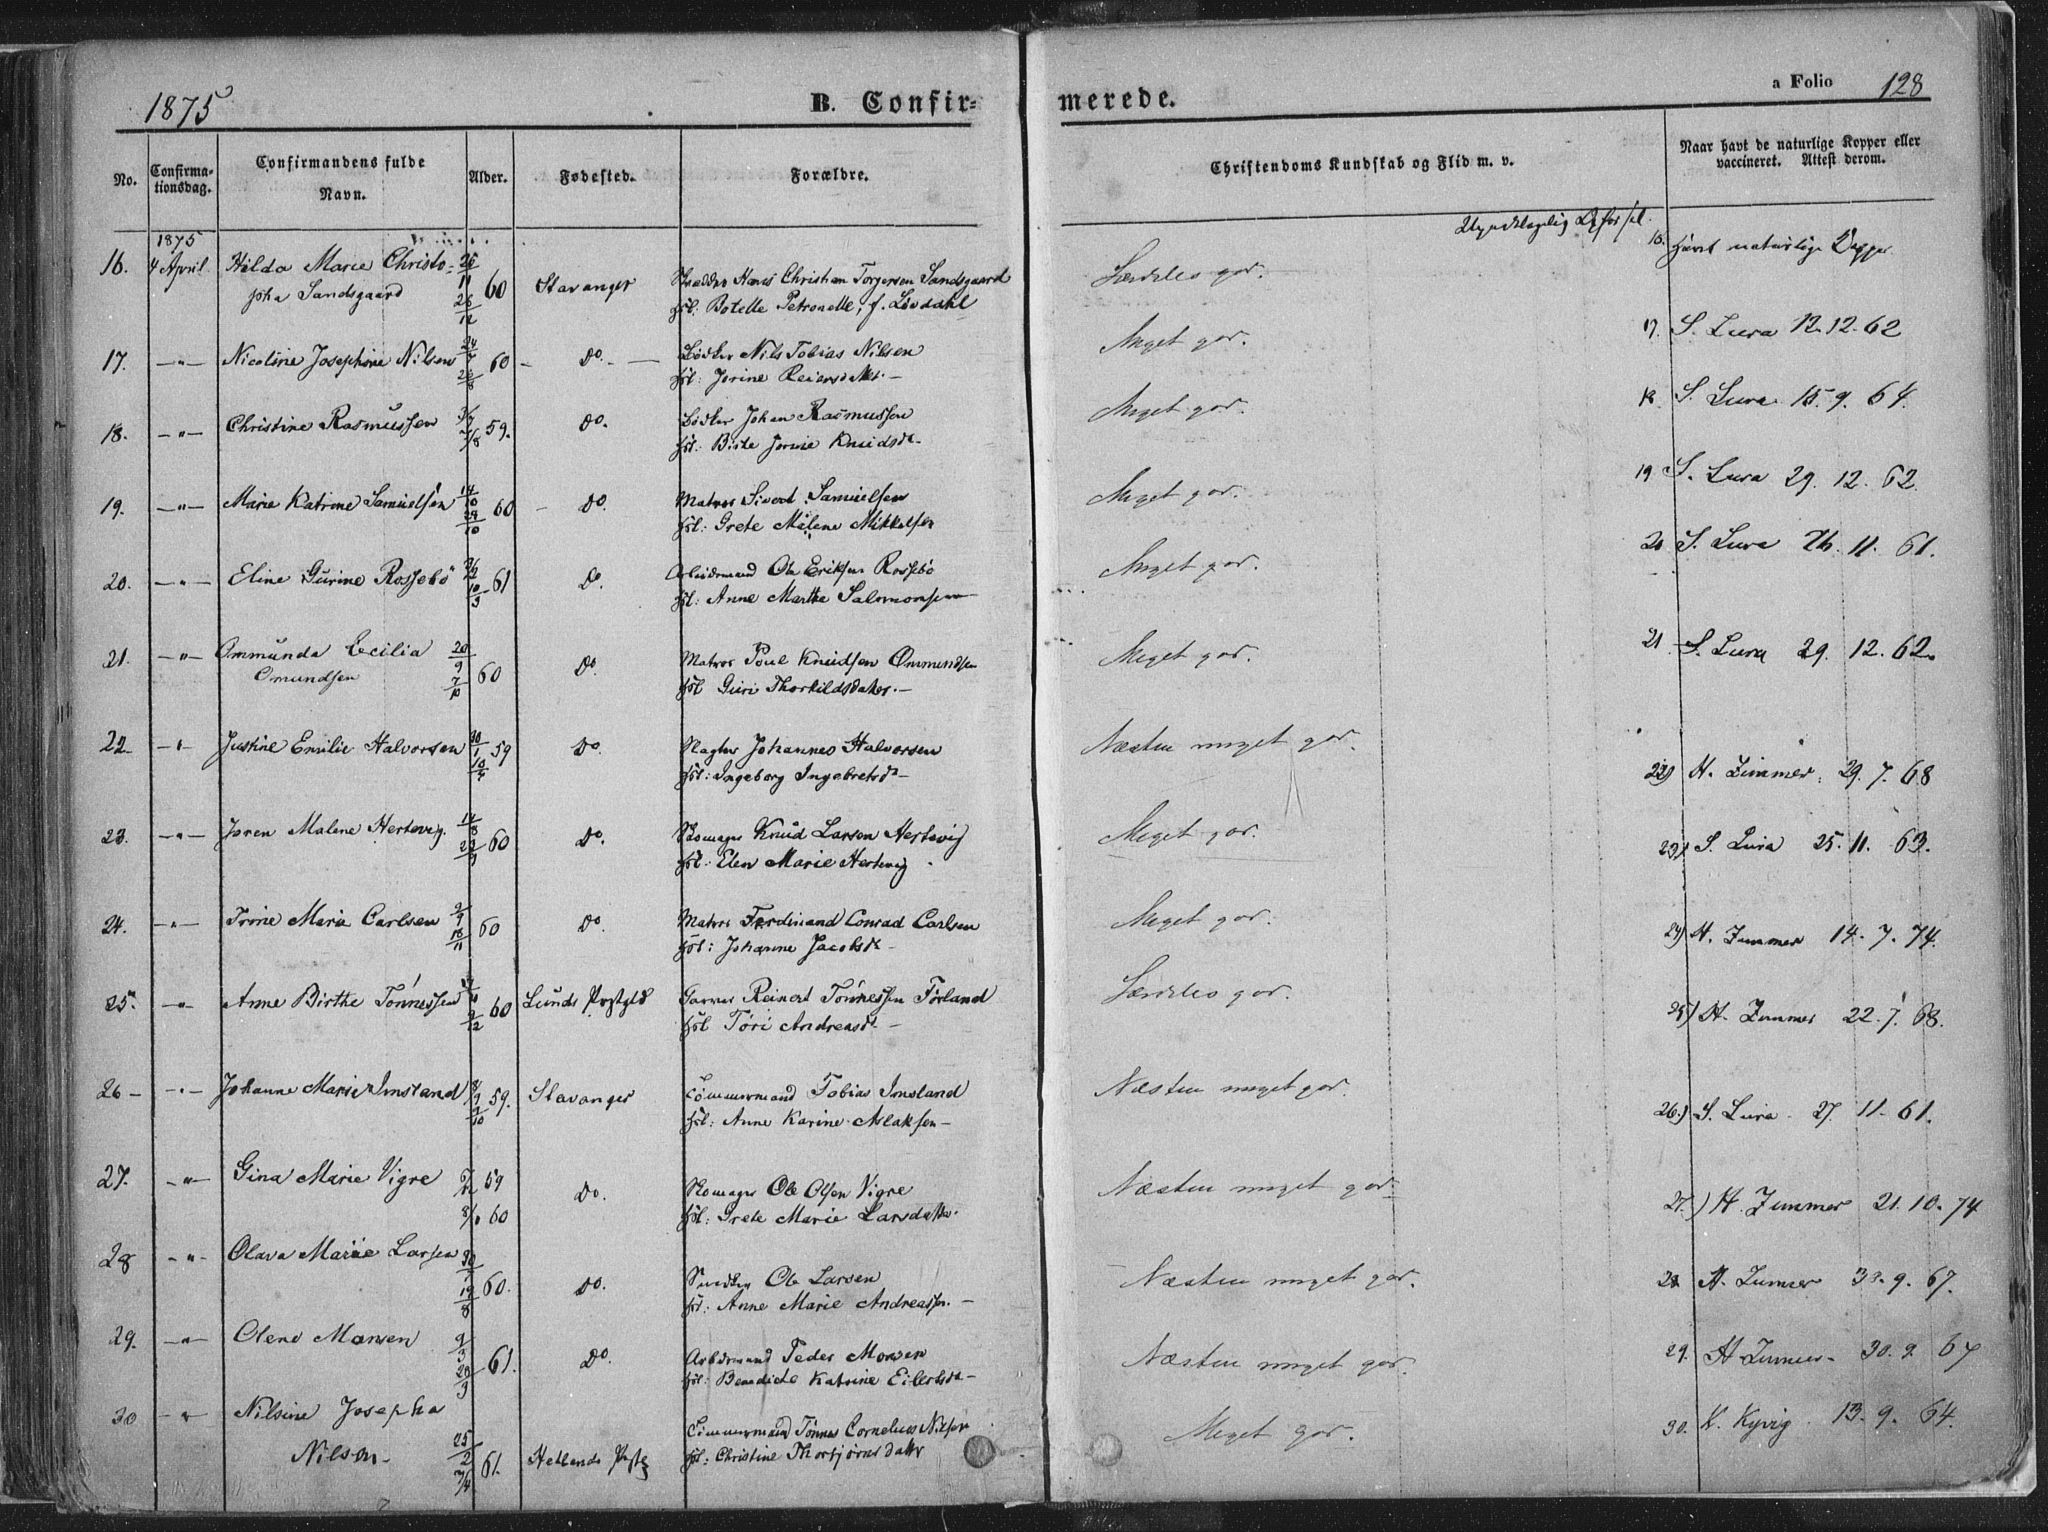 1875
B. Confir-
merede.
a Folio 128
No.
Confirma-
tionsdag.
Confirmandens fulde
Navn.
Alder.
Fødested.
Forældre.
Christendoms Kundskab og Flid m. v.
Naar havt de naturlige Kopper eller
vaccineret. Attest derom.
1875
16. 4 April Hilda Marie Christo- 25/11 60 Stavanger Hans Christian Torgersen Sandsgaard Særdeles god. 16. Havt naturlige Kopper
pha Sandsgaard 26/12 Hst: Botelle Petronelle, f. Løvdahl
17. —"— Nicoline Josephine Nilsen 24/7 60 Do. Bødker Nils Tobias Nilsen Meget god. 17. S. Lura 12.12.62
26/8 Hst: Jorine Reiersdatter.
18. —"— Christine Rasmussen 59. Do. Bødker Johan Rasmussen Meget god. 18. S. Lura 15.9.64.
Hst: Birte Jorine Knudsdt
19. —"— Marie Katrine Samuelsen 14/10 60 Do. Matros Sivert Samuelsen Meget god. 19 S. Lura 29.12.62.
29/10 Hst: Grete Malene Mikkelsen
20. —"— Eline Gurine Rossebö 61 Do. Arbeidsmand Ole Eriksen Rossebö Meget god. 20 S. Lura 26.11.61.
10/3 Hst: Anne Martha Salomonsen
21. —"— Ommunda Cecilia 20/9 60 Do Matros Poul Knudsen Ommundsen Meget god. 21 S. Lura 29.12.62.
Omundsen 7/10 Hst Guri Thorkildsdatter.
22 —"— Justine Emilie Halvorsen 30/1 59 Do. Slagter Johannes Halvorsen Næsten meget god. 22) H. Zimmer 29.7.68
10/4 Hst: Ingeborg Ingebretsdt
23. —"— Joren Malene Hertevig. 14/8 60 Do. Skomager Knud Larsen Hertevig Meget god. 23) S. Lura 25.11.63.
23/9 Hst: Elen Marie Hertevig
24. —"— Trine Marie Carlsen 2/9 60 Do. Matros Ferdinand Conrad Carlsen Meget god. 24) H. Zimmer 14.7.74.
18/11 Hst: Johanne Jacobsdt
25. —"— Anne Birthe Tönnessen 60 Lunds Prstgld Reinert Tönnessen Förland Særdeles god. 25) H. Zimmer 22.7.68.
9/12 Hst Tori Andreasdt
26 —"— Johanne Marie Imsland 8/9 59. Stavanger Tömmermand Tobias Imsland Næsten meget god. 26.) S. Lura 27.11.61.
9/10 Hst: Anne Karine Aslaksen
27. —"— Gina Marie Vigre 59 Do. Skomager Ole Olsen Vigre Næsten meget god. 27.) H Zimmer 21.10.74
60 Hst: Grete Marie Larsdatter.
28 —"— Olava Marie Larsen 30/7 60. Do. Snedker Ole Larsen Næsten meget god. 28 H. Zimmer 30.9.67.
19/8 Hst: Anne Marie Andreassen.
29. —"— Olene Monsen 9/3 61. Do. Arbdsmand Peder Monsen Næsten meget god. 29. H Zimmer 30.9.67
20/3 Hst: Benedicte Katrine Eilertsdt
30 —"— Nilsine Josepha Tömmermand Tönnes Cornelius Nilsen Meget god. 30. K. Kyvig. 13.9.64.
Nilson 25/2 61. Hetlands Prstg Hst: Christine Thorbjörnsdatter